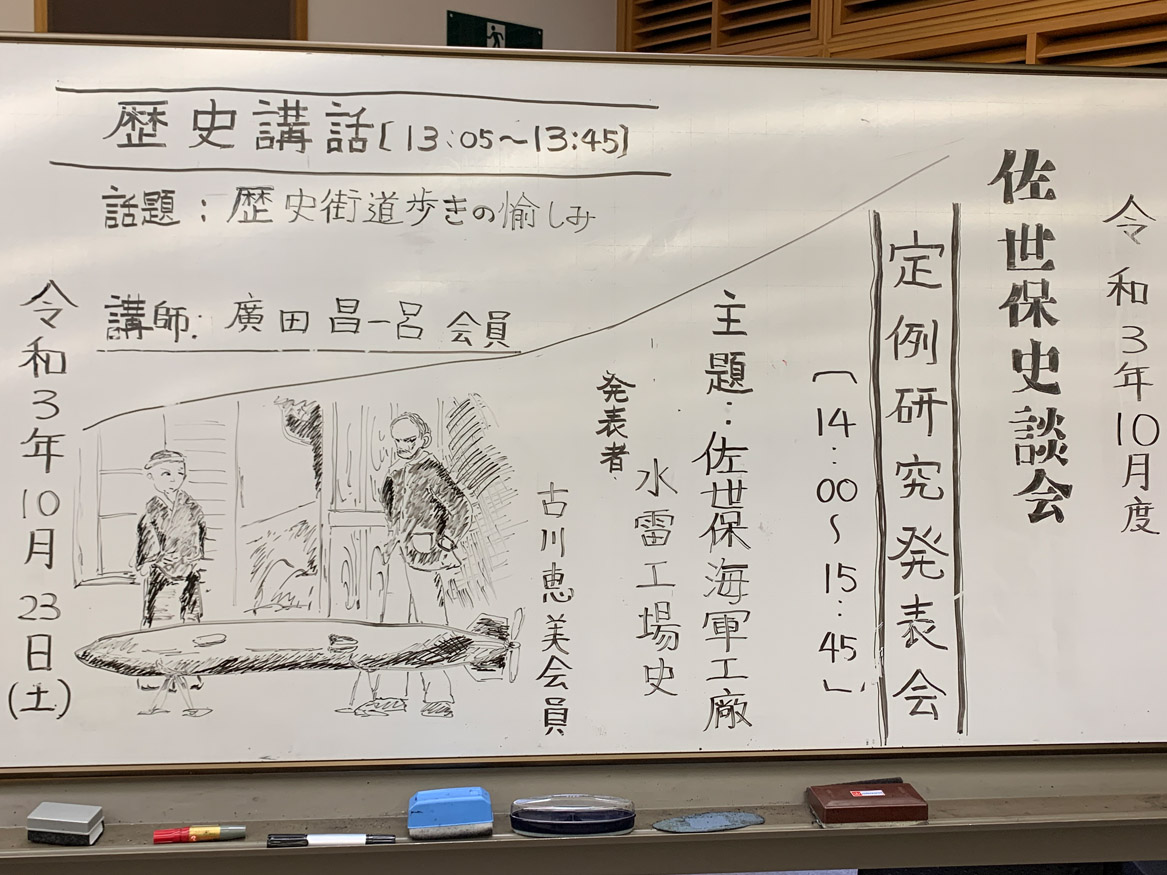 令和3年10月度
佐世保史談会
定例研究発表会
〔14:00～15:45〕
主題:佐世保海軍工廠
水雷工場史
発表者
古川恵美会員
歴史講話[13:05～13:45]
話題:歴史街道歩きの愉しみ
講師:廣田昌一呂会員
令和3年10月23日(土)